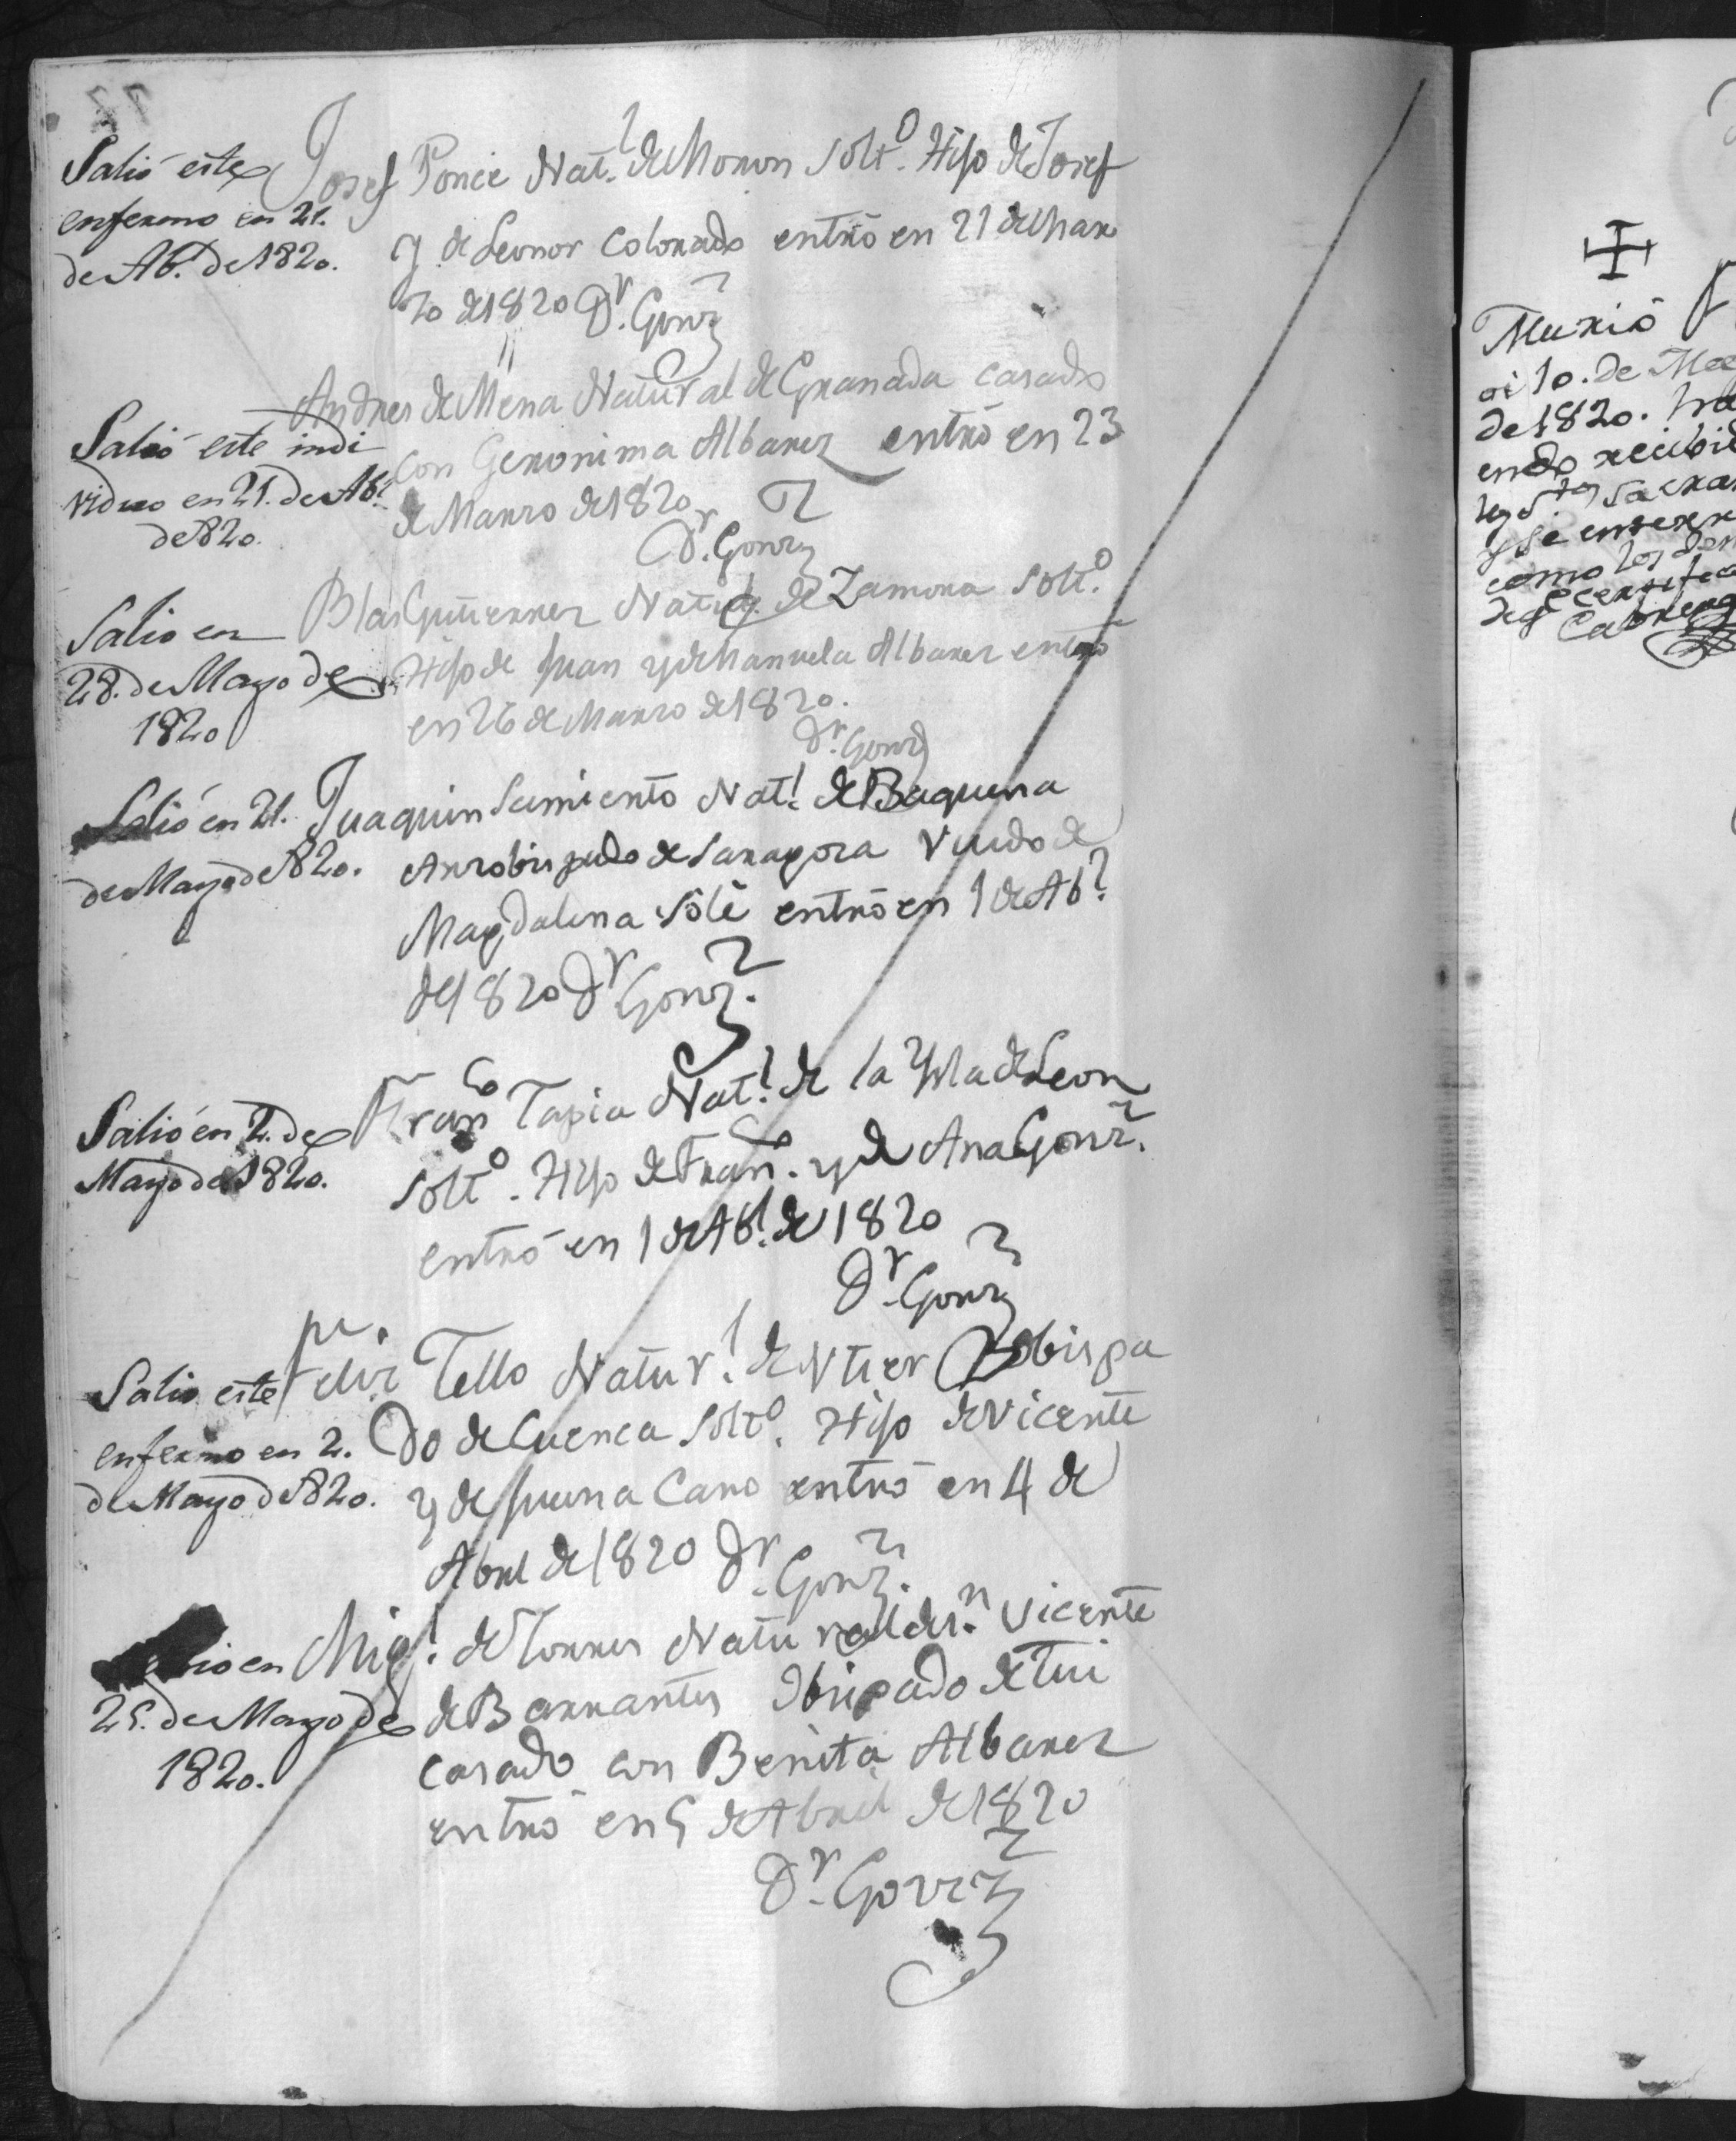 Salió este
enfermo en 21.
de Ab.l de 1820.
Josef Ponce Nat.l de Moron Solt.o Hijo de Josef
y de Leonor Colorado entró en 21 de Mar
zo de 1820 D.r Gonz
Salió este indi
viduo en 21. de Ab.l
de 820.
Andres de Mena Natural de Granada casado
con Geronima Albarez entró en 23
de Marzo de 1820
D.r Gonz
Salio en
28. de Mayo de
1820
Blas Gutierrez Natural de Zamora Solt.o
Hijo de Juan y de Manuela Albarez entró
en 26 de Marzo de 1820.
D.r Gonz
Salió en 21.
de Mayo de 820.
Juaquin Sarmiento Nat.l de Baguena
Arzobispado de Saragoza Viudo de
Magdalena Solé entró en 1 de Ab.l
de 1820 D.r Gonz.
Salió en 2. de
Mayo de 1820.
Fran.co Tapia Nat.l de la Ysla de Leon
Solt.o. Hijo de Fran.co y de Ana Gonz.
entró en 1 de Ab.l de 1820
D.r Gonz
Salio este
enfermo en 2.
de Mayo de 820.
Felix Tello Natur.l de Obispa
do de Cuenca Solt.o. Hijo de Vicente
y de Juana Cano entró en 4 de
Abril de 1820 D.r Gonz.
en
25. de Mayo de
1820.
Mig.l de Torres Natural de S.n Vicente
de Barrantes Obispado de Tui
casado con Benita Albarez
entró en 5 de Abril de 1820
D.r Gonz
Murió
de 1820.
endo recibid
los S.tos Sacra
y se enterr
como los